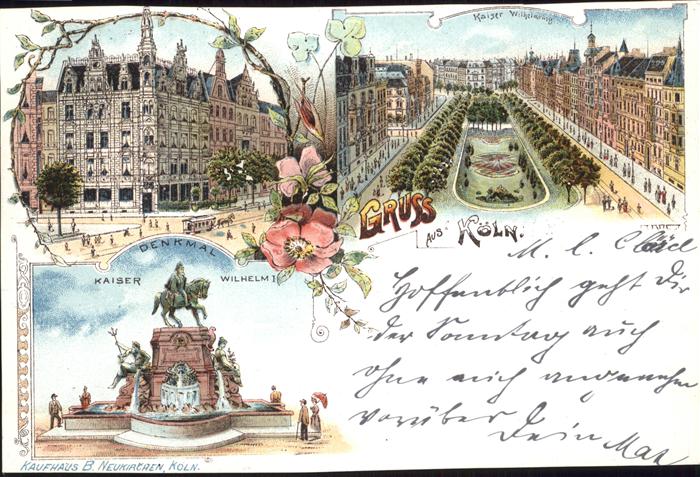 Kaiser Wilhelmring
GRUSS
AUS: KÖLN.
DENKMAL
KAISER WILHELM I
M. l.
Hoffentlich geht Dir
der Sonntag auch
ohne mich angenehm
vorüber
Dein Max
KAUFHAUS B. NEUKIRCHEN, KÖLN.